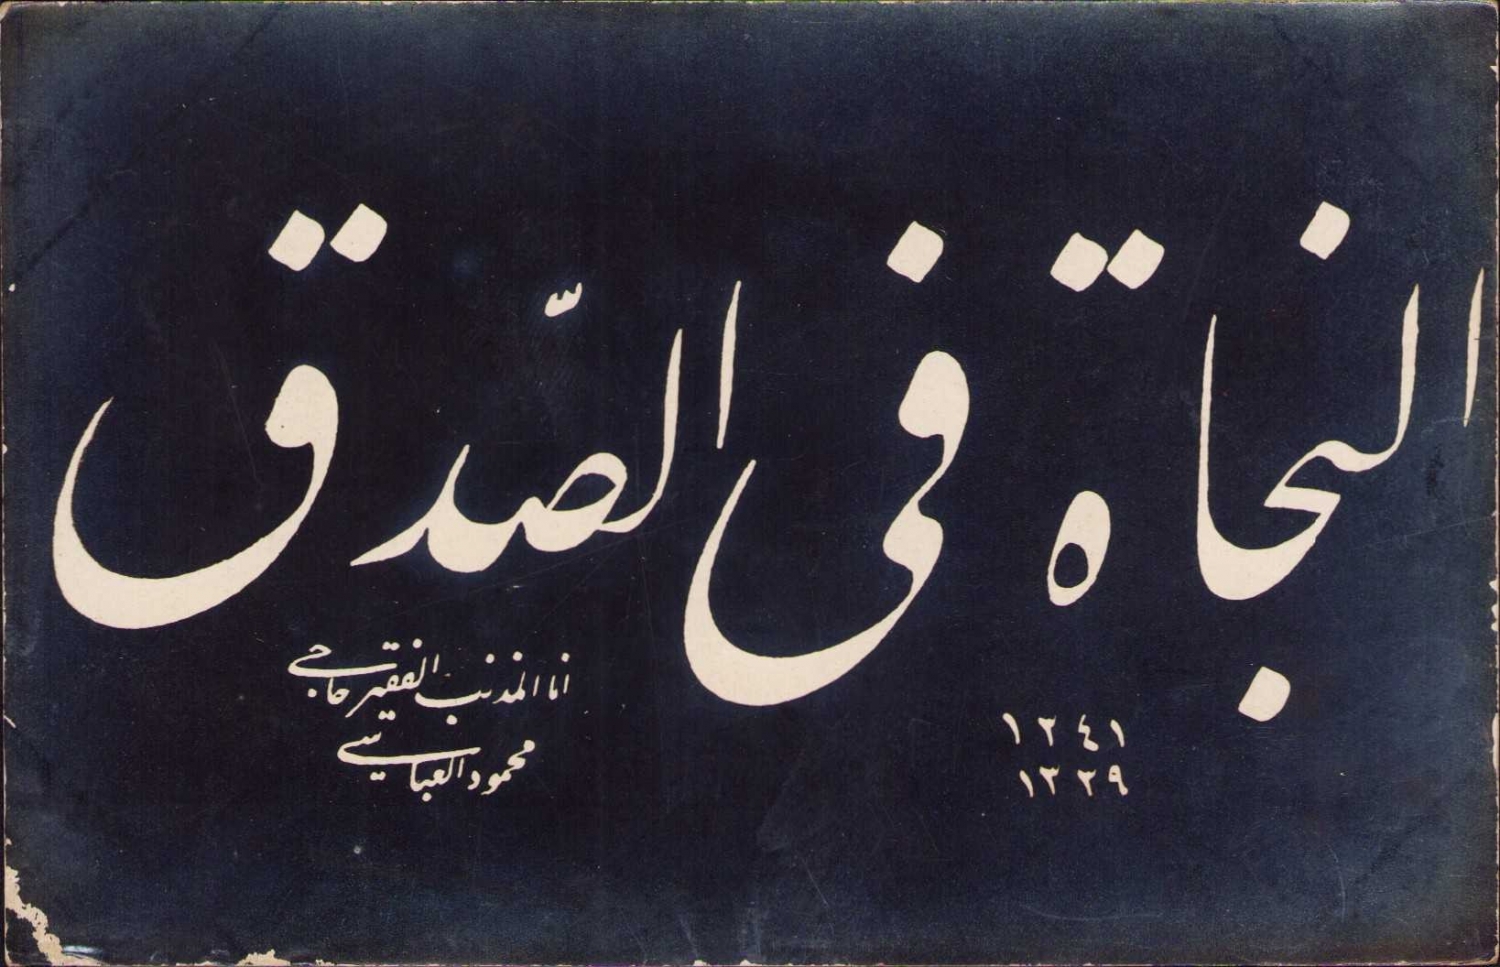 النجاة فى الصّدق
انا المذنب الفقير حاجى
محمود العباسى
١٣٤١
١٣٣٩